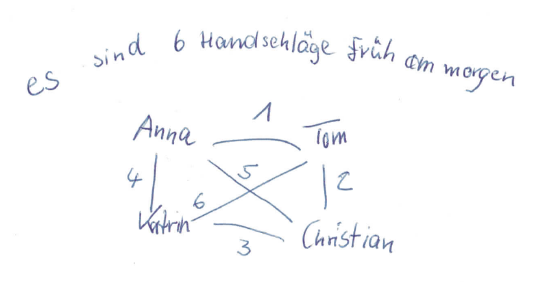 es sind 6 Handschläge früh am morgen
1
Anna Tom
4 5 2
6
Katrin Christian
3